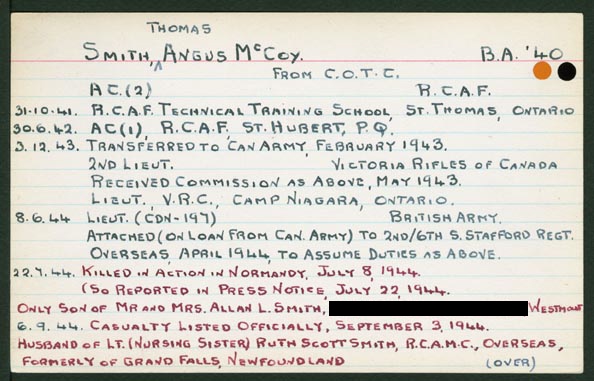 THOMAS
SMITH, ^ ANGUS MCCOY. B.A. '40
FROM C.O.T.C.
AC.(2) R.C.A.F.
31.10.41. R.C.A.F. TECHNICAL TRAINING SCHOOL, ST. THOMAS, ONTARIO
30.6.42. AC(1), R.C.A.F., ST. HUBERT, P.Q.
3.12.43. TRANSFERRED TO CAN ARMY, FEBRUARY 1943.
2ND LIEUT. VICTORIA RIFLES OF CANADA
RECEIVED COMMISSION AS ABOVE, MAY 1943.
LIEUT., V.R.C., CAMP NIAGARA, ONTARIO.
8.6.44 LIEUT. (CDN-197) BRITISH ARMY.
ATTACHED (ON LOAN FROM CAN. ARMY) TO 2ND/6TH S. STAFFORD REGT.
OVERSEAS, APRIL 1944, TO ASSUME DUTIES AS ABOVE.
22.7.44. KILLED IN ACTION IN NORMANDY, JULY 8, 1944.
(SO REPORTED IN PRESS NOTICE, JULY 22, 1944.
ONLY SON OF MR AND MRS. ALLAN L. SMITH, WESTMOUNT
6.9.44. CASUALTY LISTED OFFICIALLY, SEPTEMBER 3, 1944.
HUSBAND OF LT. (NURSING SISTER) RUTH SCOTT SMITH, R.C.A.M.C., OVERSEAS,
FORMERLY OF GRAND FALLS, NEWFOUNDLAND (OVER)